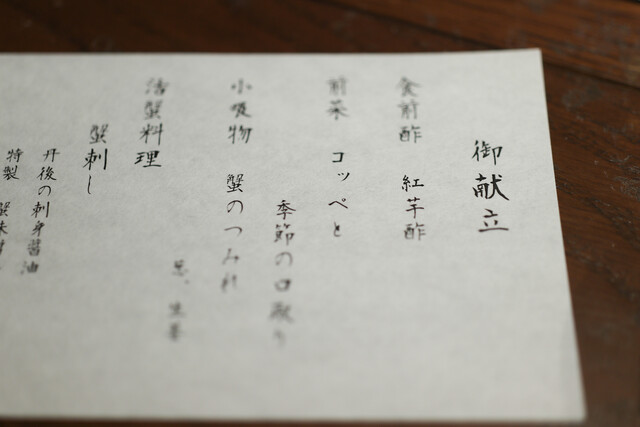 御献立
食前酢 紅芋酢
前菜 コッペと
季節の口取り
小吸物 蟹のつみれ
活蟹料理
蟹刺し
丹後の刺身醤油
特製